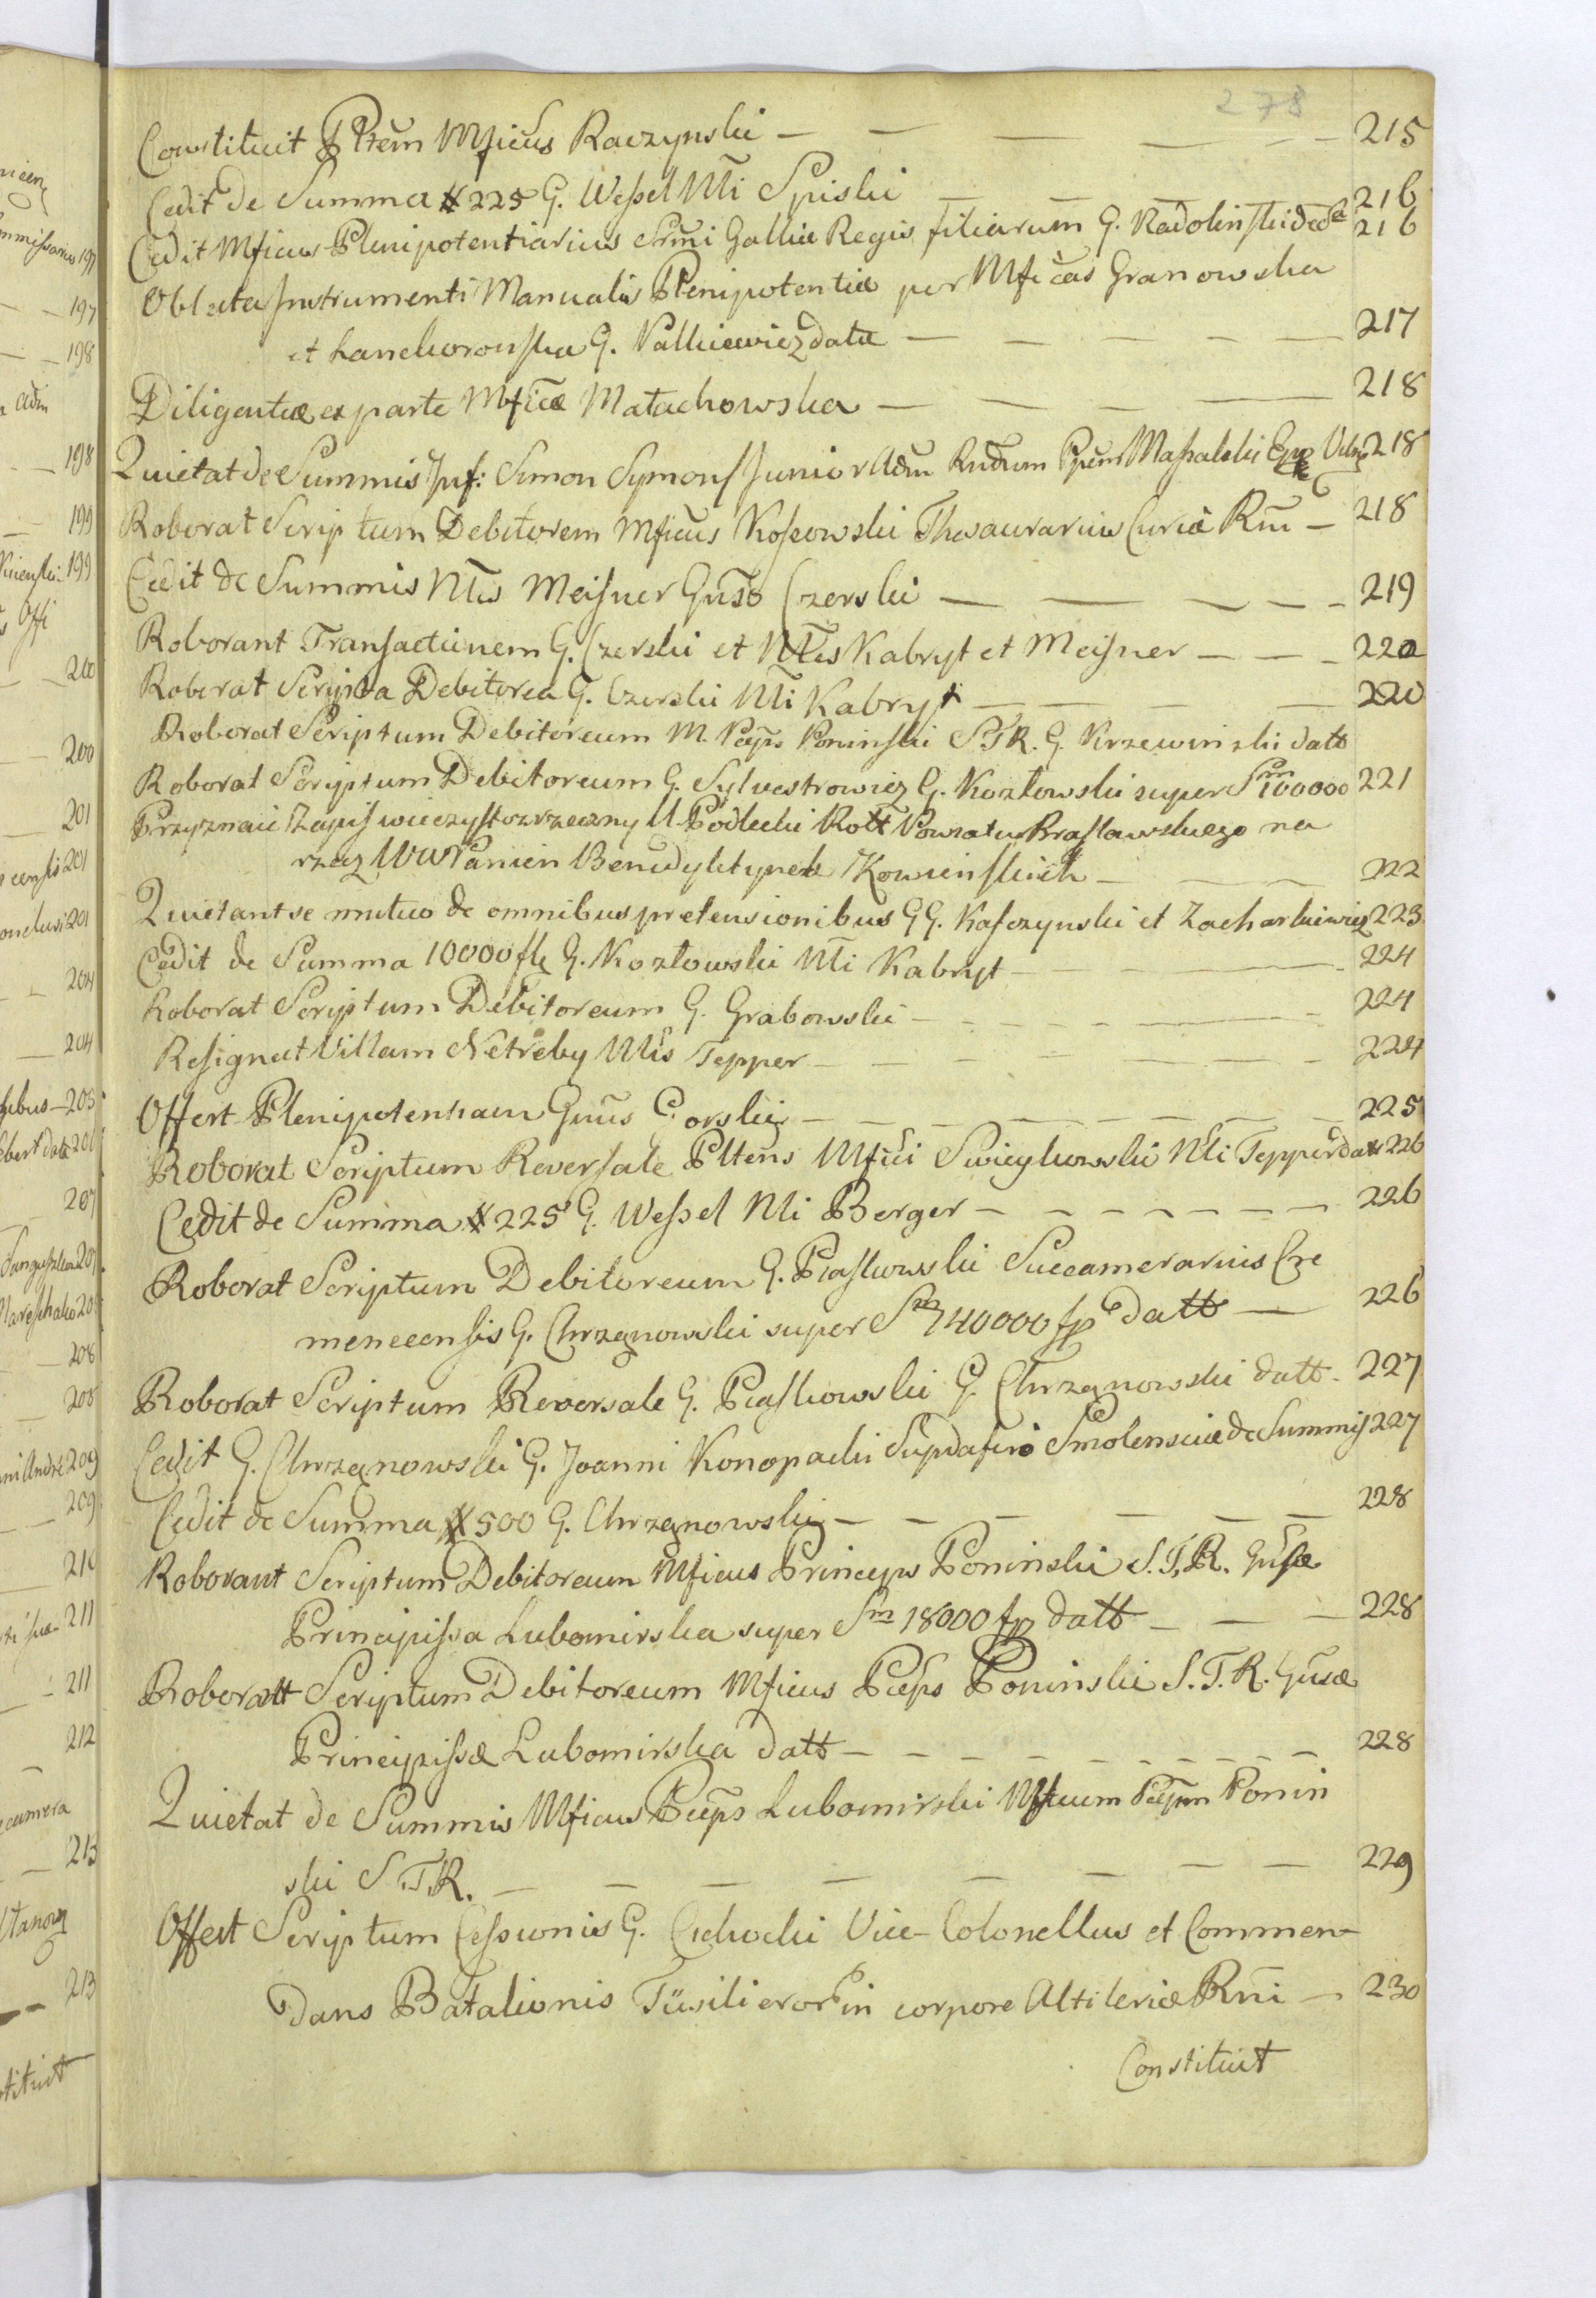 278
Constituit Pltem Mficus Raczynski — — — 215
Cedit de Summa # 225 G. Wessel Nli Spiski — 216
Cedit Mficus Plenipotentiarius Srmi Galliæ Regis filiarum G. Radolinski 216
Oblata Instrumenti Manualis Plenipotentiæ per Mficas Granowska
et Lanckoronska G. Valkiewicz datæ — — — 217
Diligentiæ ex parte Mficæ Małachowska — — — 218
Quietat de Summis Inf: Simon Symons Junior Adm Rndum Massalski Epp Viln 218
Roborat Scriptum Debitorem Mficus Kossowski Thesaurarius Curiæ Rni — 218
Cedit de Summis Nlis Meisner Gnso Czerski — — — 219
Roborant Transactionem G. Czerski et Nlis Kabryt et Meisner — — — 220
Roborat Scripta Debitorea G. Czerski Nli Kabryt — — — 220
Roborat Scriptum Debitoreum M. Pceps Poninski S.T.R. G. Krzewinski datt
Roborat Scriptum Debitoreum G. Sylvestrowicz G. Kozłowski super Sm 100000 221
Przyznaie Zapis wieczystozrzeczny U. Podlecki Rott Powiatu Brasławskiego na
rzecz WW Panien Benedyktynek Kowienskich — — 222
Quietant se mutuo de omnibus pretensionibus GG. Kasczynski et Zacharkiewicz 223
Cedit de Summa 10000 fl G. Kozłowski Nli Kabryt — — 224
Roborat Scriptum Debitoreum G. Grabowski — — — 224
Resignat Villam Netreby Nlis Tepper — — — 224
Offert Plenipotentiam Gnus Corski — — — 225
Roborat Scriptum Reversale Pltens Mfici Swieykowski Nli Tepper datt 226
Cedit de Summa # 225 G. Wessel Nli Berger — — — 226
Roborat Scriptum Debitoreum G. Piaskowski Succamerarius Cre
menecensis G. Chrzanowski super Sm 740000 fp datt — 226
Roborat Scriptum Reversale G. Piaskowski G. Chrzanowski datt — 227
Cedit G. Chrzanowski G. Joanni Konopacki Supdafero Smolensciæ de Summis 227
Cedit de Summa # 500 G. Chrzanowski — — — 228
Roborant Scriptum Debitoreum Mficus Princeps Poninski S.T.R. Gnsæ
Principissa Lubomirska super Sm 18000 fp datt — — — 228
Roboratt Scriptum Debitoreum Mficus Pceps Poninski S.T.R. Gnsæ
Principissæ Lubomirska datt — — — 228
Quietat de Summis Mficus Pceps Lubomirski Mficum Pcpem Ponin
ski S.T.R. — — — 229
Offert Scriptum Cessionis G. Cichocki Vice-Colonellus et Commen-
dans Batalionis Füsilieror in corpore Altileriæ Rni — 230
Constituit